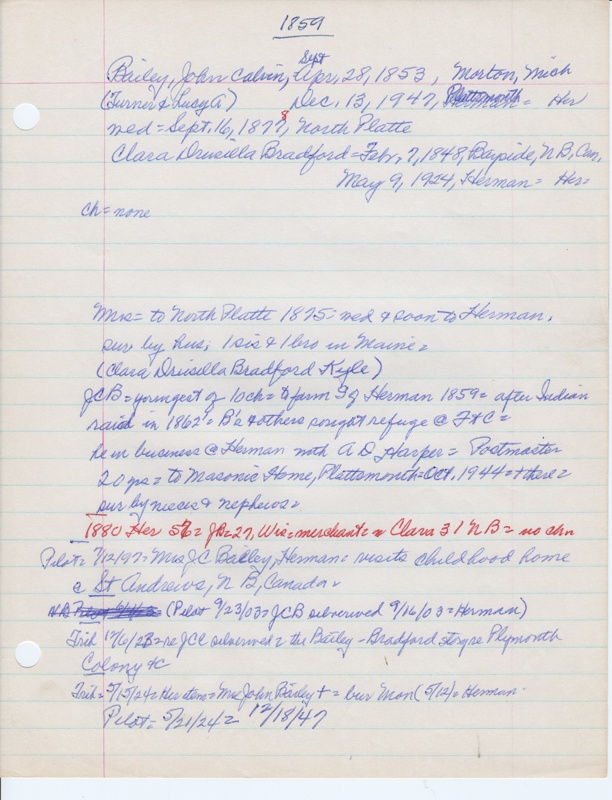 1859
Sept
Bailey, John Calvin, Apr. 28, 1853, Morton, Mich
(Turner & Lucy A) Dec. 13, 1947, Plattsmouth = Her
wed = Sept. 16, 1877 8, North Platte
Clara Druscilla Bradford = Febr. 7, 1848, Bayside, N B, Can,
May 9, 1924, Herman = Her =
ch = none
Mrs = to North Platte 1875 = wed & soon to Herman,
sur by hus, 1 sis & 1 bro in Maine =
(Clara Driscilla Bradford Kyle)
JCB = youngest of 10 ch = to farm S of Herman 1859 = after Indian
raid in 1862 = B's & others sought refuge @ Ft C =
he in business @ Herman with A D Harper = Postmaster
20 yrs = to Masonic Home, Plattsmouth = Oct. 1944 = + there =
sur by nieces & nephews =
1880 Her 56 = JB = 27, Wis = merchant = w Clara 31 NB = no chn
Pilot = 7/12/97 = Mrs JC Bailey, Herman = visits childhood home
@ St Andrews, N B, Canada =
(Pilot 9/23/03 = JCB silverwed 9/16/03 = Herman)
Trib 12/6/28 = re JCC silverwed = the Bailey - Bradford story re Plymouth
Colony &c
Trib = 5/15/24 = Her item = Mrs John Bailey + = bur Mon (5/12) = Herman -
Pilot = 5/21/24 = 12/18/47